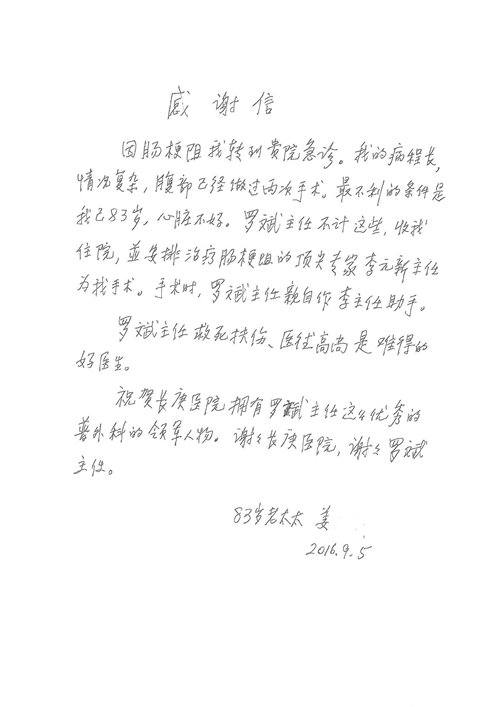 感谢信
因肠梗阻我转到贵院急诊。我的病程长,
情况复杂,腹部已经做过两次手术。最不利的条件是
我已83岁,心脏不好。罗斌主任不计这些,收我
住院,并安排治疗肠梗阻的顶尖专家李元新主任
为我手术。手术时,罗斌主任亲自作李主任助手。
罗斌主任救死扶伤、医德高尚是难得的
好医生。
祝贺长庚医院拥有罗斌主任这么优秀的
普外科的领军人物。谢谢长庚医院,谢谢罗斌
主任。
83岁老太太 姜
2016.9.5